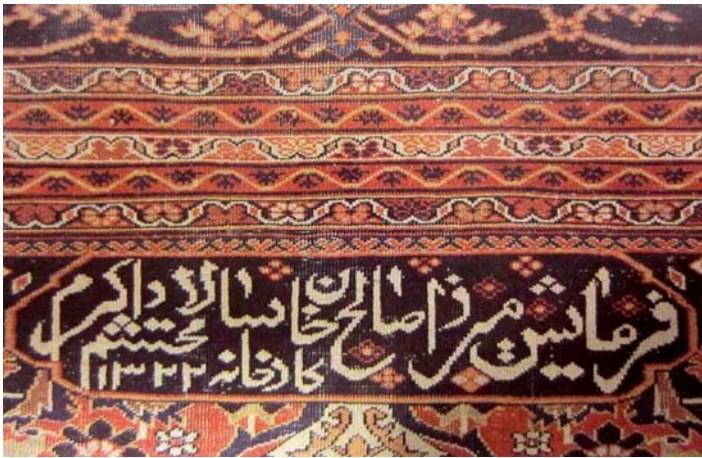 فرمایش میرزا صالح خان سالار اکرم
کارخانه محتشم ۱۳۲۲